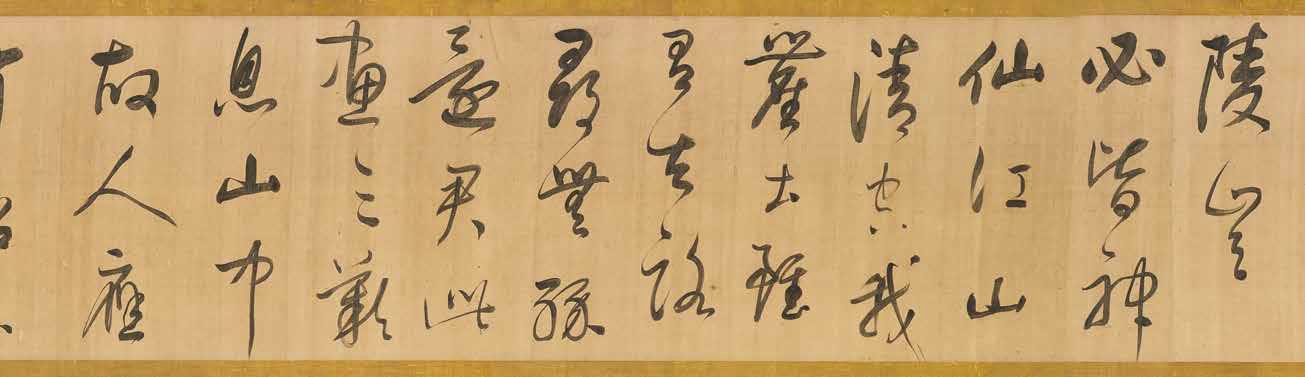 陵豈
必皆神
仙江山
清空我
塵土雖
有去路
尋無緣
還君此
畫三歎
息山中
故人應